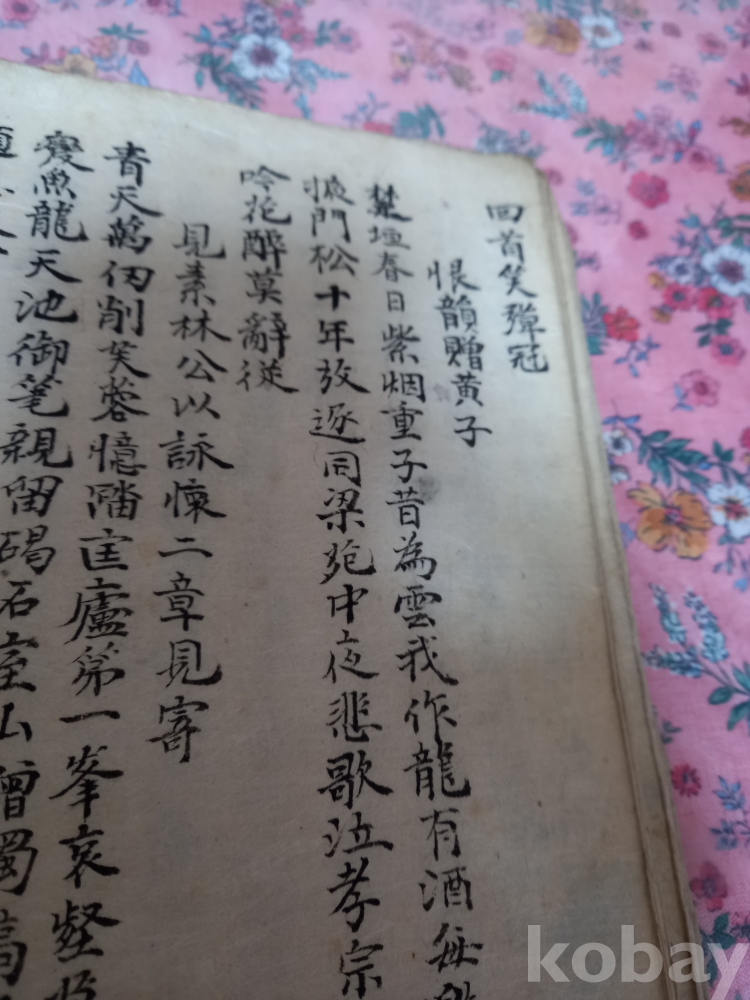 回首笑彈冠
恨韻贈黄子
禁垣春日紫烟重子昔為雲我作龍有酒每
掖門松十年放逐同梁苑中夜悲歌泣孝宗
吟花醉莫辭從
見素林公以詠懷二章見寄
青天萬仞削芙蓉憶踏匡廬第一峯哀壑
變魚龍天池御筆親留碣石室仙僧獨高
kobay